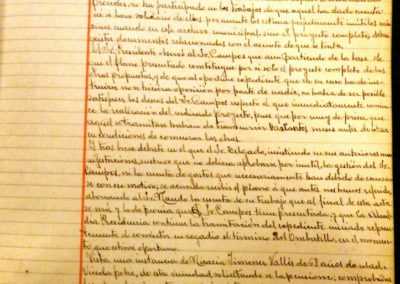 Proceder, no ha participado en los trabajos de que aquel ha dado cuenta
no se hace solidario de ellos por cuanto los estima perfectamente inútiles, más
aun cuando en este archivo municipal, sino el proyecto completo, deben
documentos relacionados con el asunto de que se trata.
El Sr. Presidente observó al Sr. Campos que aun partiendo de la base de
que el plano presentado constituyera por sí solo el proyecto completo de las
obras propuestas, y de que al oportuno expediente que de su caso ha de ins-
truirse no se hiciera oposición por parte de nadie, no habría de ser posible
satisfacer los deseos del Sr. Campos respecto a que inmediatamente comien-
ce la realización del indicado proyecto, pues que por muy de prisa que
aquel se tramitara habrían de transcurrir bastantes meses antes de estar
en condiciones de comenzar las obras.
Y tras leve debate en el que el Sr. Delgado, insistiendo en sus anteriores ma-
nifestaciones, sostuvo que no debería aprobarse por inútil la gestión del Sr.
Campos, ni la cuenta de gastos que necesariamente han debido de causar-
se con su motivo, se acuerda recibir el plano a que antes nos hemos referido,
abonando al Sr. la cuenta de su trabajo que al final de esta acta
se verá y la de que el Sr. Campos tiene presentado, y que la Alcal-
día Presidencia continúe la tramitación del expediente iniciado referen-
temente a convertir en regadío el término del Ombatillo, en el momen-
to que estime oportuno.
Vista una instancia de María Jimenez Vallés de 68 años de edad,
viuda pobre, de esta vecindad solicitando se la pensione; comprobados